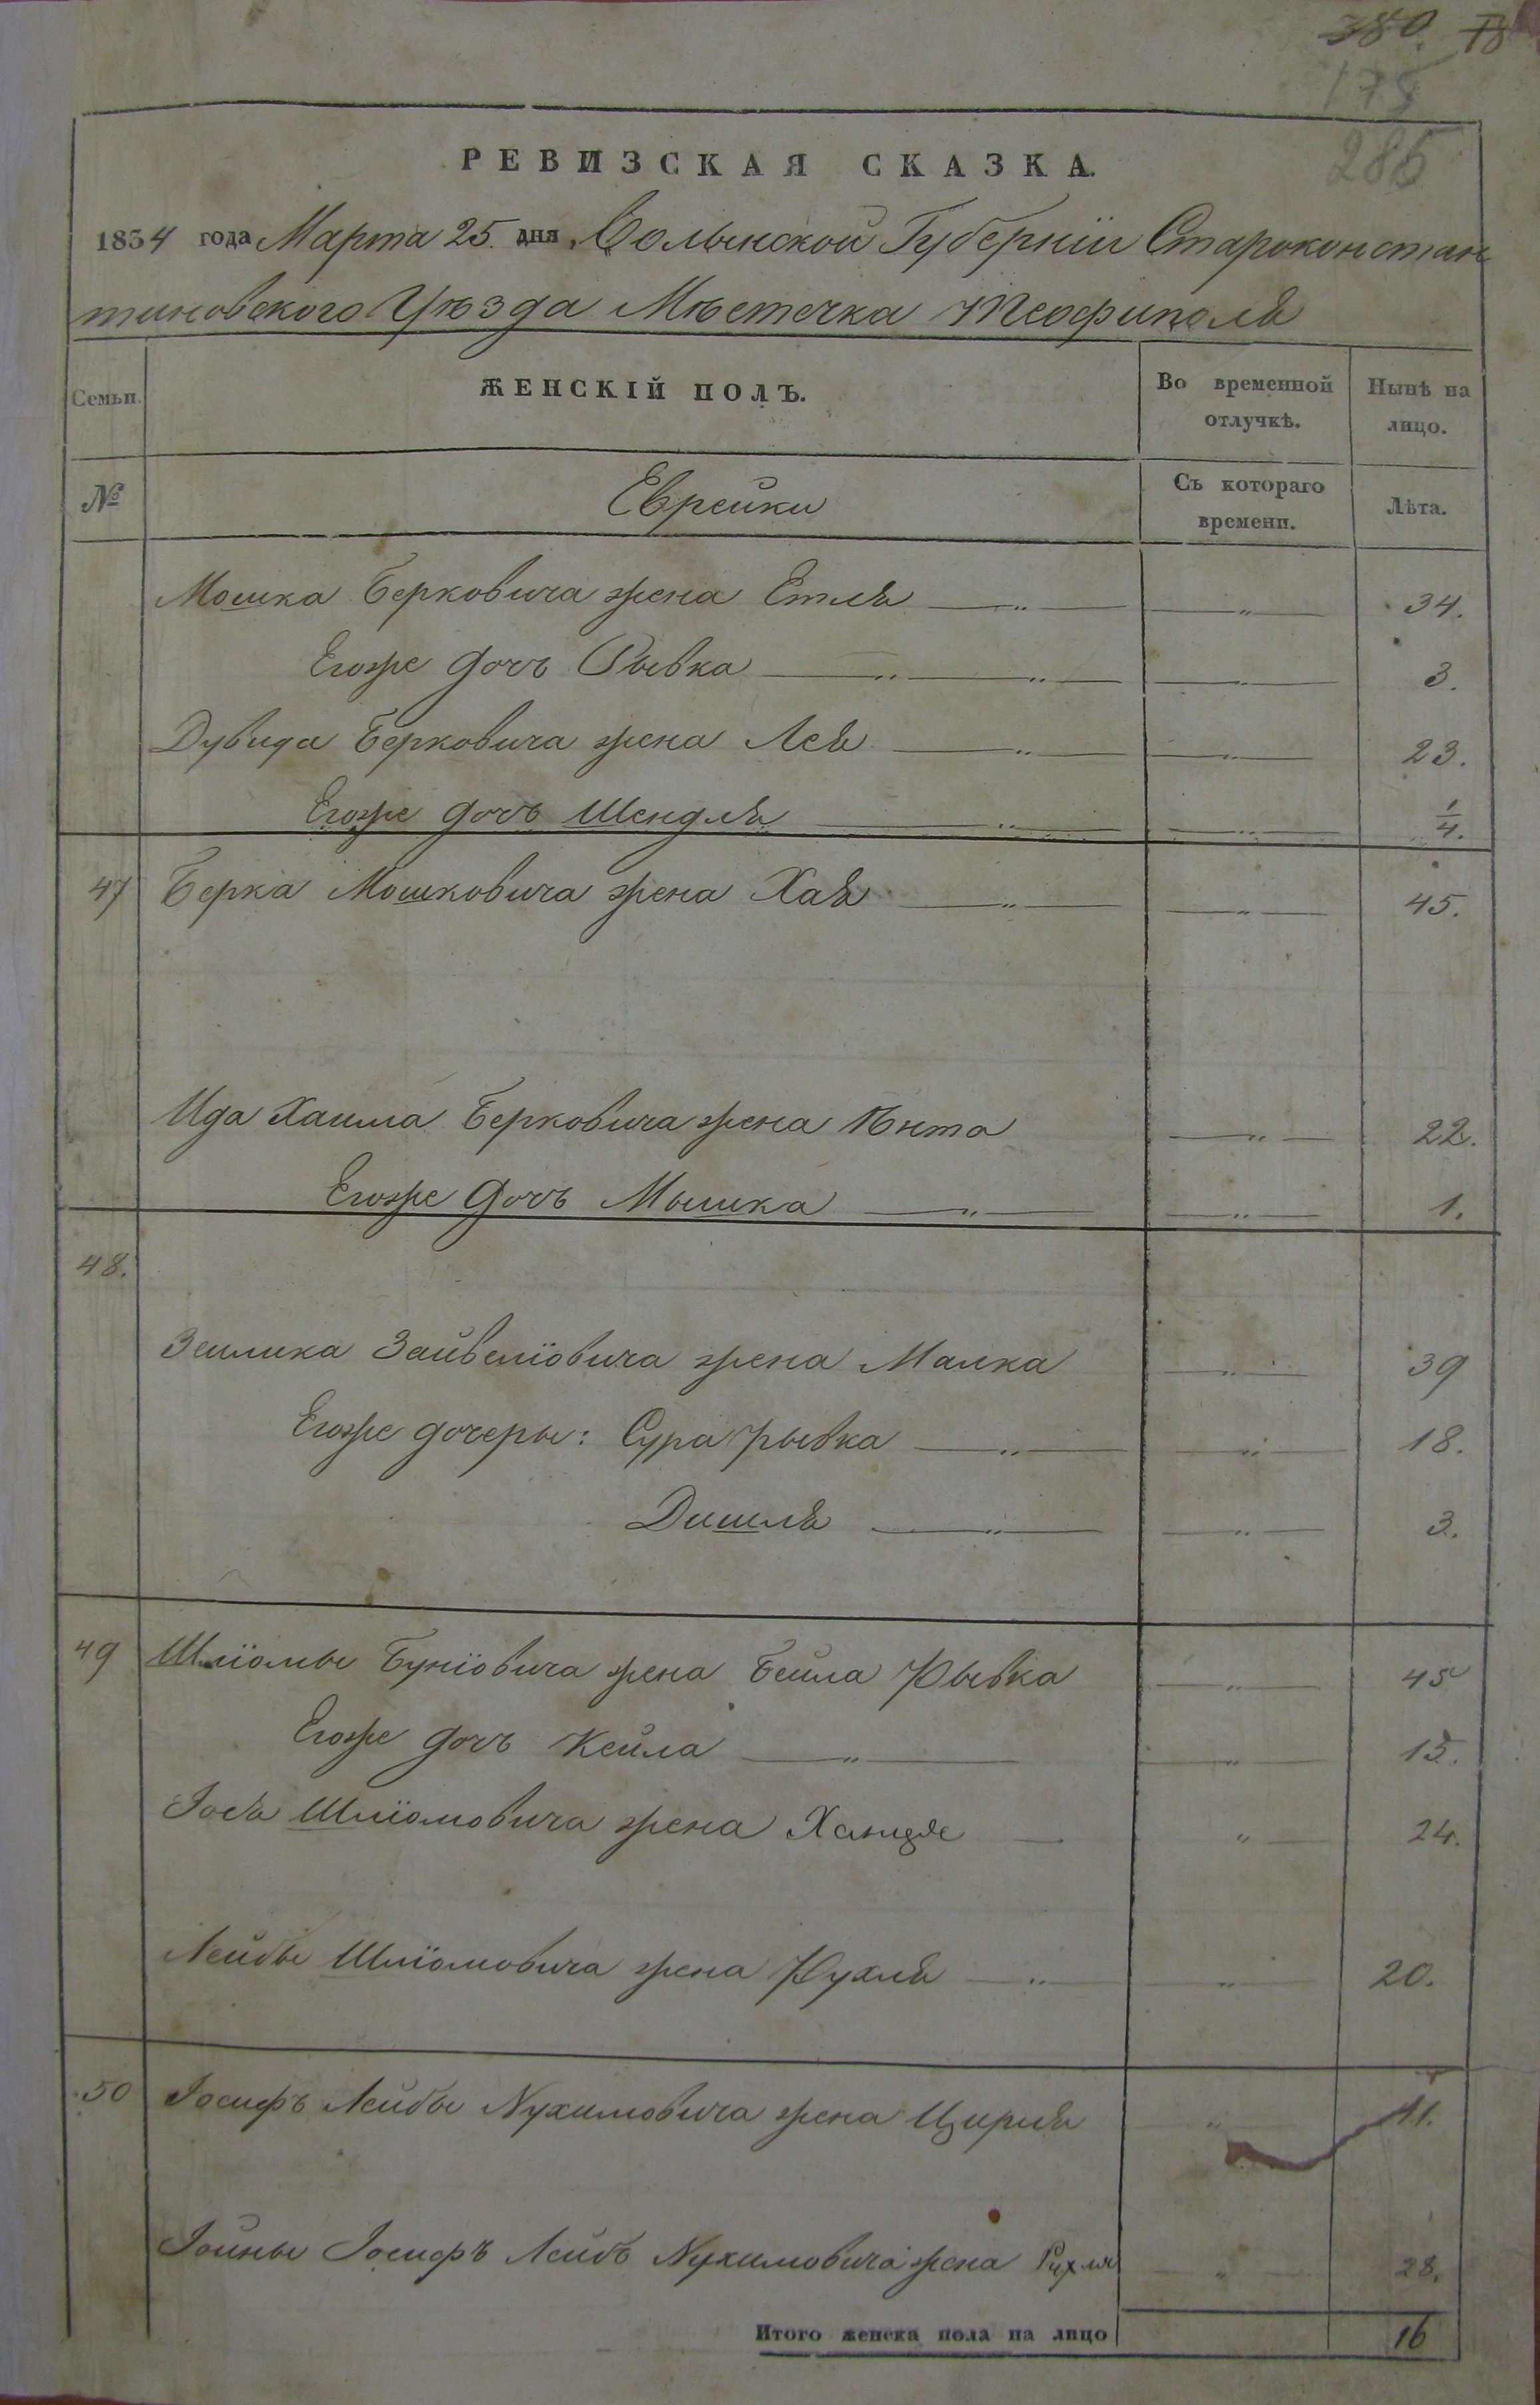 380. 78
178
286
РЕВИЗСКАЯ СКАЗКА.
1854 года Марта 25. дня, Волынской Губерніи Староконстан
тиновскаго Уѣзда Мѣстечка Теофиполя
Семьи.
ЖЕНСКІЙ ПОЛЪ.
Во временной отлучкѣ.
Нынѣ на лицо.
№
Еврейки
Съ котораго времени.
Лѣта.
Мошка Берковича жена Етля — „ — — „ — 34.
Егоже дочь Рывка — „ — „ — — „ — 3.
Дувида Берковича жена Лея — „ — — „ — 23.
Егоже дочь Шендля — „ — — „ — 1/4.
47 Берка Мошковича жена Хая — „ — — „ — 45.
Ида Хаима Берковича жена Ента — „ — 22.
Егоже дочь Мышка — „ — — „ — 1.
48.
Зелика Зайвеліовича жена Малка — „ — 39
Егоже дочеры: Сура Рывка — „ — — „ — 18.
Дишля — „ — — „ — 3.
49 Шліомы Буніовича жена Бейла Рывка — „ — 45
Егоже дочь Кейла — „ — — „ — 15.
Іося Шліомовича жена Хандзе — „ — 24.
Лейбы Шліомовича жена Рухля — „ — „ — 20.
50 Іосифъ Лейбы Нухимовича жена Цирля „ 41.
Іойны Іосифъ Лейбъ Нухимовича жена Рухля „ 28.
Итого женска пола на лицо 16